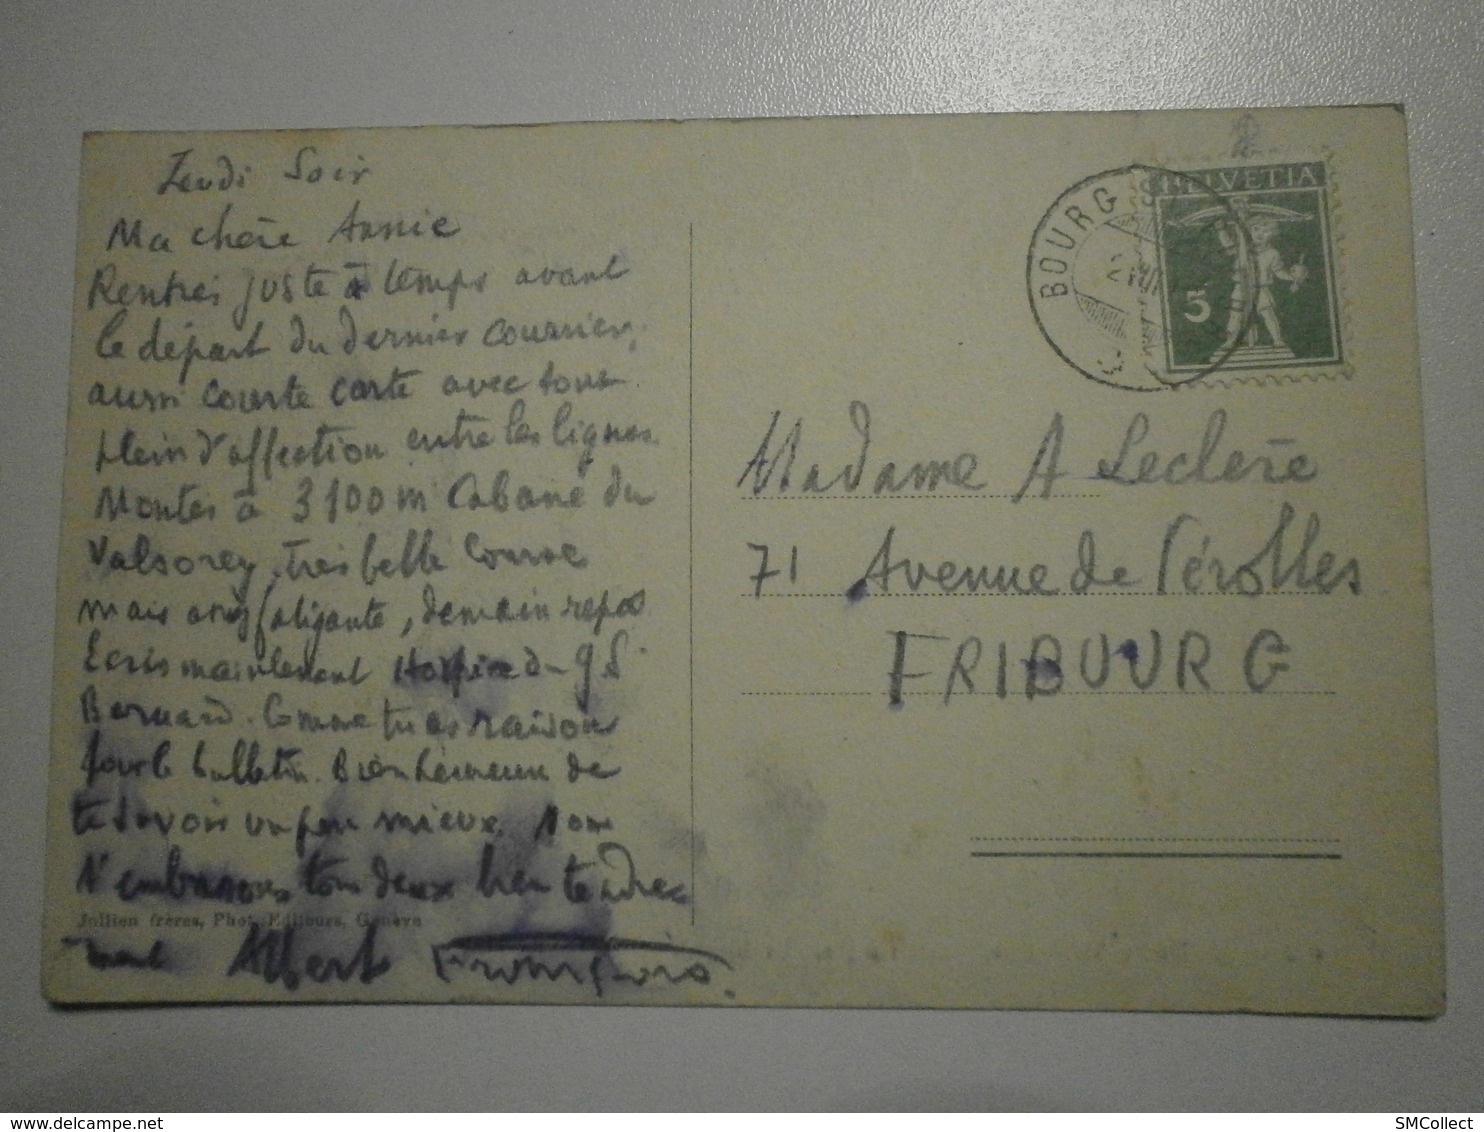 Jeudi Soir
Ma chère Annie
Rentrés juste à temps avant
le départ du dernier courrier,
aussi courte carte avec tout
plein d'affection entre les lignes.
Montés à 3100m Cabane du
Valsorey, très belle course
mais assez fatigante, demain repos
Ecris maintenant Hospice du gd St
Bernard. Comme tu as raison
pour le bulletin. Bien heureux de
te savoir un peu mieux. Nous
t'embrassons tous deux bien tendre
ment Albert François.
Jullien frères, Phot. Editeurs, Genève
HELVETIA
5
BOURG
Madame A Leclere
71 Avenue de Pérolles
FRIBOURG
SMCollect